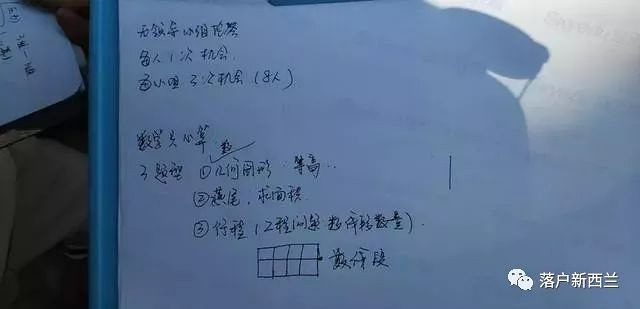 无领导小组抢答
每人1次机会
每小组3次机会(8人)
数学类心算 数
3题型 ①几何图形 等高..
②燕尾,求面积
③行程(工程问题 数线段数量).
数线段
落户新西兰